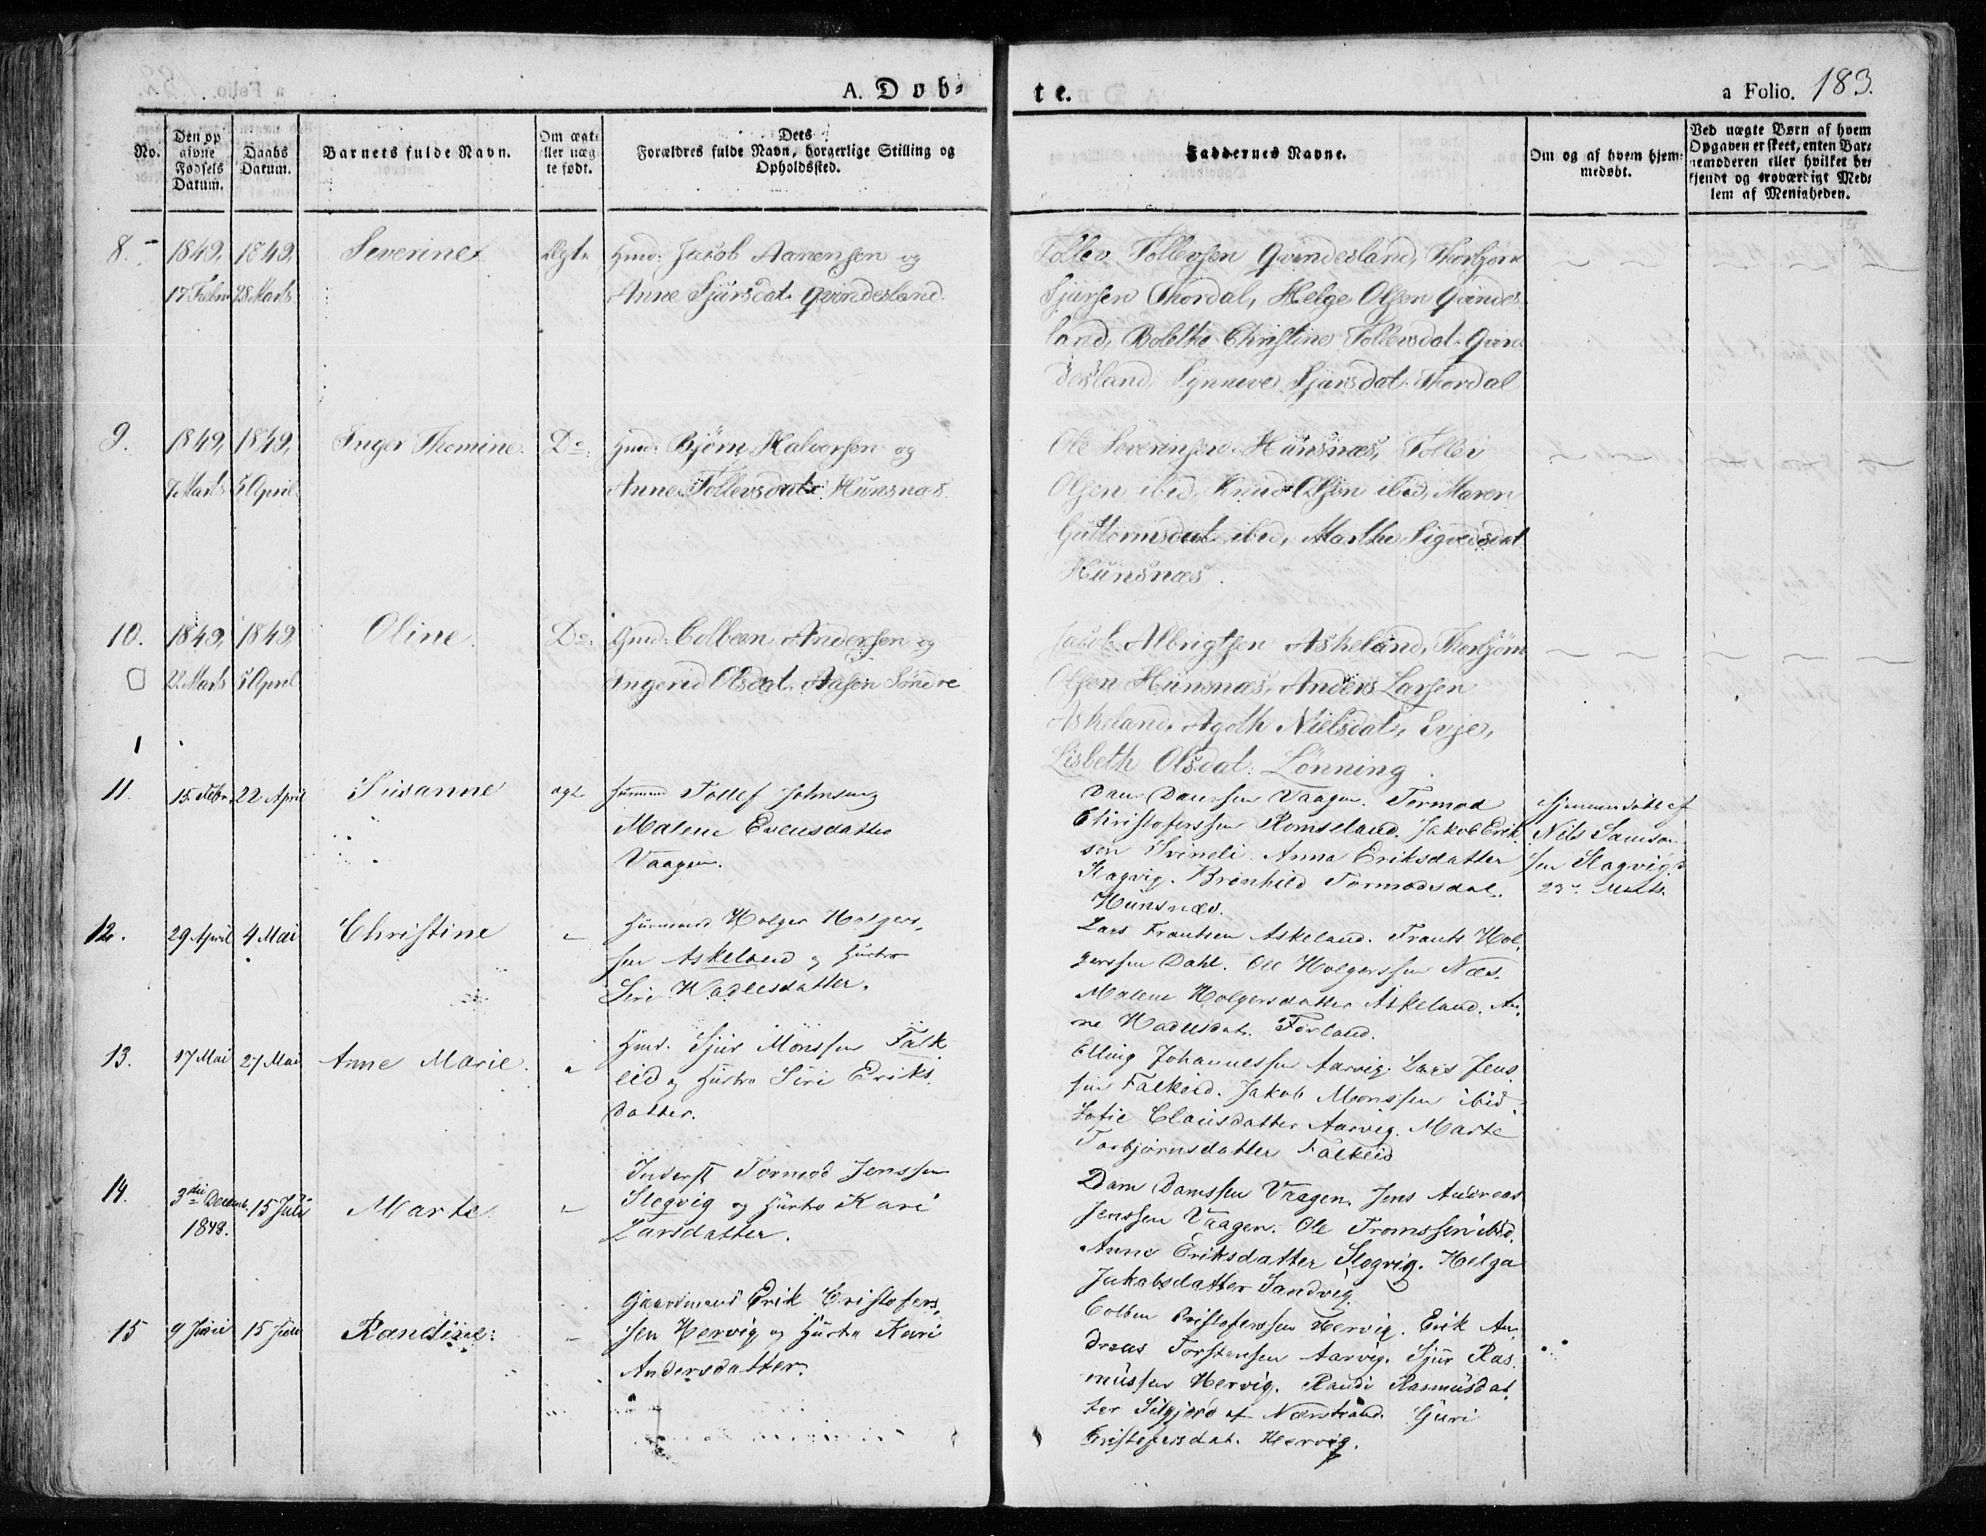 A. Døb-
te.
a Folio. 183.
No.
Den opgivne Fødsels Datum.
Daabs Datum.
Barnets fulde Navn.
Om ægte eller uægte født.
Dets Forældres fulde Navn, borgerlige Stilling og Opholdssted.
Faddernes Navne.
Om og af hvem hjemmedøbt.
Ved uægte Børn af hvem Opgaven er skeet, enten Barnemoderen eller hvilket bekjendt og troværdigt Medlem af Menigheden.
8.
1849, 17 Febr
1849, 28 Marts
Severine
Ægte
Gmd: Jacob Aanensen og
Anne Sjursdat. Qvindesland.
Tollev Tollevsen Qvindesland, Thorbjørn
Sjursen Thordal, Helge Olsen Qvindes-
land, Bolethe Christine Tollevsdat. Qvin-
desland, Synneve Sjursdat. Thordal
9.
1849, 7 Marts
1849, 5 April
Inger Thomine.
Do:
Gmd: Bjørn Halvorsen og
Anne Tollevsdat: Hunsnæs.
Ole Severinsen Hunsnæs, Tollev
Olsen ibid, Knud Olsen ibid, Maren
Guttormsdat ibid, Marthe Sigvedsdat
Hunsnæs.
10.
1849, 22 Marts
1849, 5 April
Oline.
Do:
Gmd: Colbeen Andersen og
Ingerid Olsdat. Aasen Søndre
Jacob Albrigtsen Askeland, Thorbjørn
Olsen Hunsnæs, Anders Larsen
Askeland, Agoth Nielsdat, Evje,
Lisbeth Olsdat: Lønning.
11.
15 Febr.
22 April
Susanne
ægt
Huusmand Tollef Johnsen og
Malene Evensdatter
Vaagen.
Dan Dansen Vaagen. Tormod
Christoferssen Romseland. Jakob Erik-
sen Svineli. Anna Eriksdatter
Slagvig. Brønhild Tormodsdat.
Hunsnæs.
Hjemmedøbt af
Nils Samson-
sen Slagvig d
23de Marts.
12.
29 April
4 Mai
Christine
Huusmand Holger Holgers-
sen Askeland og Hustro
Siri Hadlesdatter.
Lars Frantsen Askeland. Frants Hol-
gerssen Dahl. Ole Holgerssen Næs.
Malene Holgersdatter Askeland. An-
ne Hadlesdat. Førland.
13.
17 Mai
27 Mai
Anne Marie.
Hmd. Sjur Monssen Falk
eid og Hustro Siri Eriks
datter.
Elling Johannessen Aarvig. Lars Jens
sen Falkeid. Jakob Monssen ibid.
Sofie Clausdatter Aarvig. Marte
Torbjørnsdatter Falkeid
14.
3die Decemb. 1848.
15 Juli
Marte.
Inderst Tormod Jenssen
Slogvig og Hustro Kari
Larsdatter.
Dam Damssen Vaagen. Jens Andreas
Jenssen Vaagen. Ole Tromssen ibid.
Anne Eriksdatter Slogvig. Helga
Jakobsdatter Sandvig.
15
9 Juni
15 Juli
Randine.
Gaardmand Erik Cristofers-
sen Hervig og Hustro Kari
Andersdatter.
Colben Cristoferssen Hervig. Erik An-
dreas Torstensen Aarvig. Sjur Ras-
mussen Hervig. Randi Rasmusdat-
ter Silgjerd af Nærstrand. Guri
Cristofersdat. Hervig.